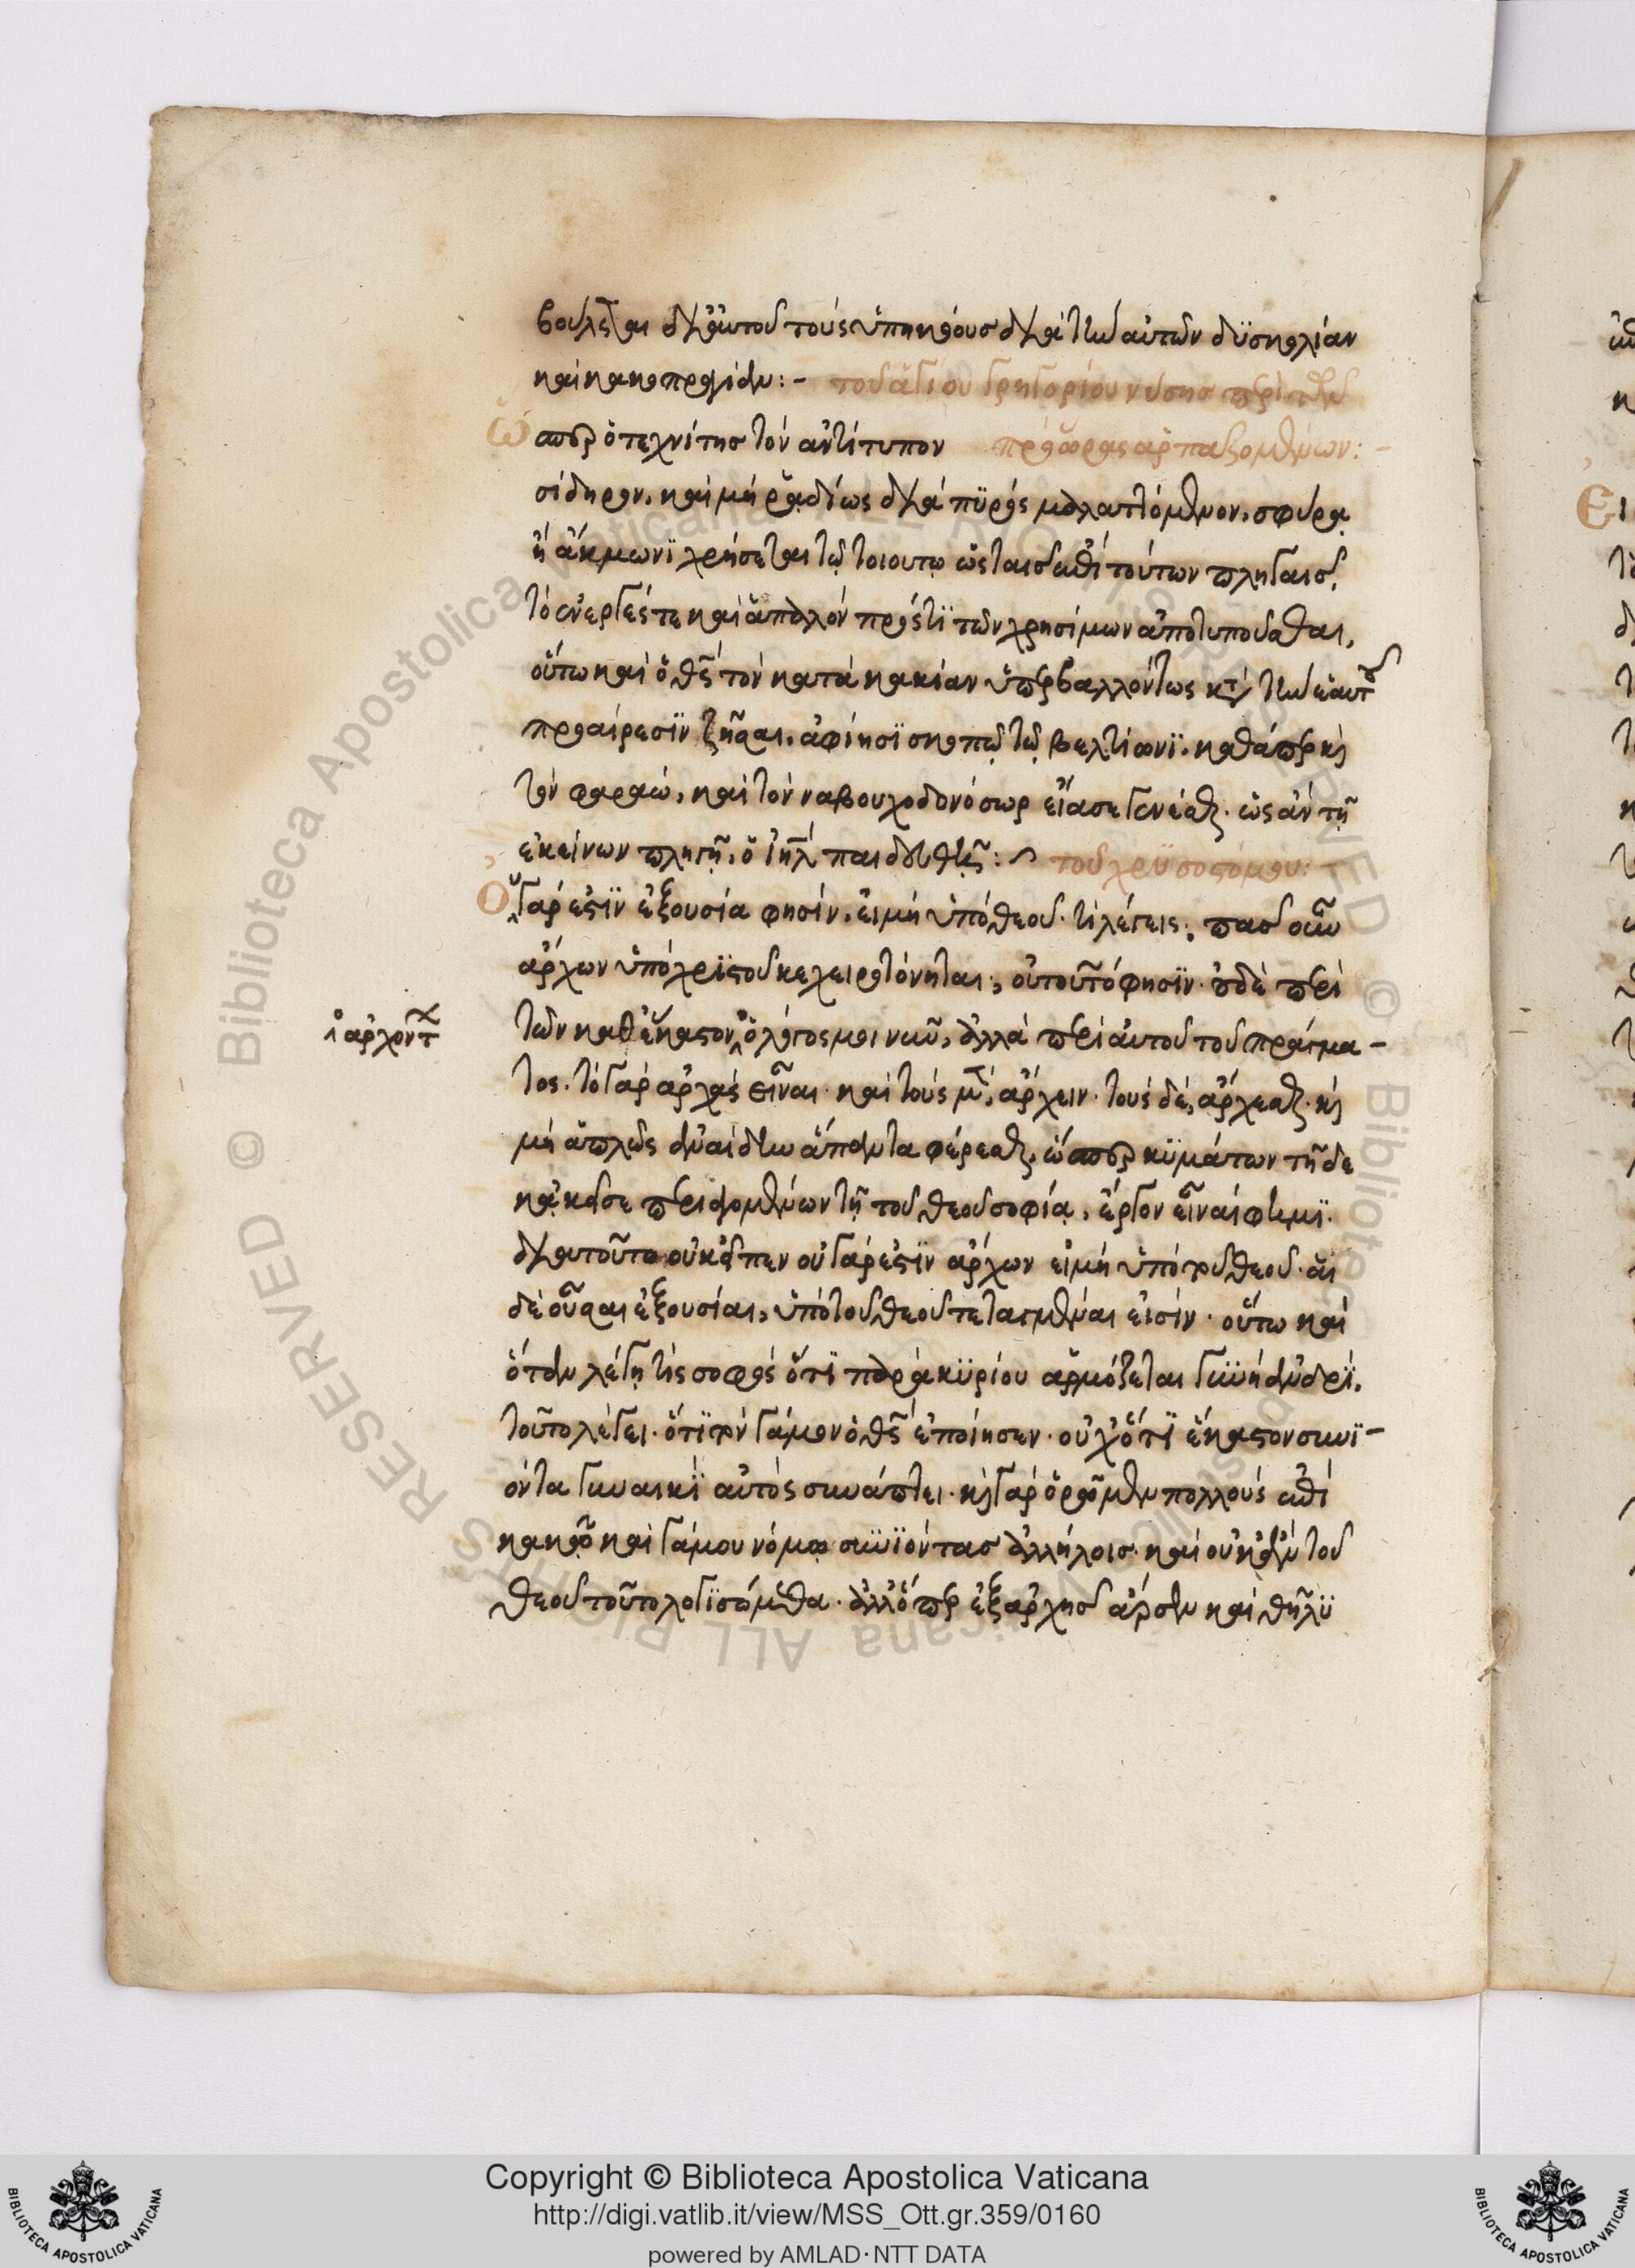 βούλεται δι' αὐτοῦ τοὺς ὑπηκόους διὰ τὴν αὐτῶν δυσκολίαν
καὶ κακοπραγίαν :- τοῦ ἁγίου Γρηγορίου νύσης περὶ τῶν
ὥσπερ ὁ τεχνίτης τὸν ἀντίτυπον πρὸ ὥρας ἁρπαζομένων :-
σίδηρον, καὶ μὴ ῥᾳδίως διὰ πυρὸς μαλαττόμενον, σφύρᾳ
ἢ ἄκμωνι χρήσεται τῷ τοιούτῳ ὡς ταῖς ἐπὶ τούτων πληγαῖς,
τὸ ἐνεργές τε καὶ ἁπαλὸν πρός τι τῶν χρησίμων ἀποτυποῦσθαι,
οὕτω καὶ ὁ θς τὸν κατὰ κακίαν ὑπερβαλλόντως κτ τὴν ἑαυτοῦ
προαίρεσιν ζῆσαι, ἀφίησι σκοπῷ τῷ βελτίονι. καθάπερ καὶ
τὸν φαραώ, καὶ τὸν ναβουχοδονόσωρ εἴασε γενέσθαι. ὡς ἂν τῇ
ἐκείνων πληγῇ, ὁ ἰηλ παιδευθῇ :~ τοῦ χρυσοστόμου :-
Οὐ γάρ ἐστιν ἐξουσία φησίν, εἰ μὴ ὑπὸ θεοῦ. τί λέγεις; πᾶς οὖν
ἄρχων ὑπὸ χριστοῦ κεχειροτόνηται; οὐ τοῦτό φησιν. οὐδὲ περὶ
λ ἀρχόντ
τῶν καθ' ἕκαστον ὁ λόγος μοι νῦν, ἀλλὰ περὶ αὐτοῦ τοῦ πράγμα-
τος. τὸ γὰρ ἀρχὰς εἶναι. καὶ τοὺς μὲν, ἄρχειν. τοὺς δὲ, ἄρχεσθαι. καὶ
μὴ ἁπλῶς ἀναίδην ἅπαντα φέρεσθαι, ὥσπερ κυμάτων τῇδε
κἀκεῖσε περιαγομένων τῇ τοῦ θεοῦ σοφίᾳ, ἔργον εἶναί φημι.
διὰ τοῦτο οὐκ εἶπεν οὐ γάρ ἐστιν ἄρχων εἰ μὴ ὑπὸ τοῦ θεοῦ. αἱ
δὲ οὖσαι ἐξουσίαι, ὑπὸ τοῦ θεοῦ τεταγμέναι εἰσίν. οὕτω καὶ
ὅταν λέγῃ τίς σοφὸς ὅτι παρὰ κυρίου ἁρμόζεται γυνὴ ἀνδρί.
τοῦτο λέγει. ὅτι τὸν γάμον ὁ θς ἐποίησεν. οὐχ ὅτι ἕκαστον συνι-
όντα γυναικὶ αὐτὸς συνάπτει. καὶ γὰρ ὁρῶμεν πολλοὺς ἐπὶ
κακῷ καὶ γάμου νόμῳ συνιόντας ἀλλήλοις. καὶ οὐκ ἂν τοῦ
θεοῦ τοῦτο λογισώμεθα. ἀλλ' ὅπερ ἐξ ἀρχῆς ἄρσεν καὶ θῆλυ
Copyright © Biblioteca Apostolica Vaticana
http://digi.vatlib.it/view/MSS_Ott.gr.359/0160
powered by AMLAD·NTT DATA